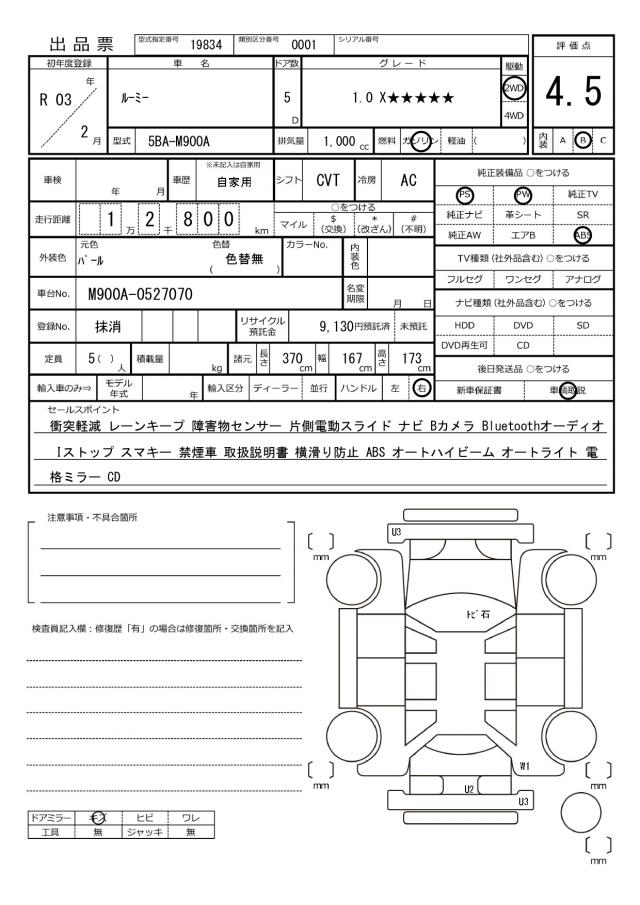 出品票 型式指定番号 19834 類別区分番号 0001 シリアル番号
評価点
4.5
内装 A B C
初年度登録 車名 ドア数 グレード 駆動
R 03 年 2 月 ルーミー 5 D 1.0 X★★★★★ 2WD 4WD
型式 5BA-M900A 排気量 1,000 cc 燃料 ガソリン 軽油 ( )
車検 年 月 車歴 ※未記入は自家用 自家用 シフト CVT 冷房 AC
走行距離 1 万 2 千 8 0 0 km
○をつける
マイル $(交換) *(改ざん) #(不明)
外装色 元色 パール 色替 ( 色替無 ) カラーNo. 内装色
車台No. M900A-0527070 名変期限 月 日
登録No. 抹消 リサイクル預託金 9,130円預託済 未預託
定員 5 ( ) 人 積載量 kg 諸元 長さ 370 cm 幅 167 cm 高さ 173 cm
輸入車のみ⇒ モデル年式 年 輸入区分 ディーラー 並行 ハンドル 左 右
純正装備品 ○をつける
PS PW 純正TV
純正ナビ 革シート SR
純正AW エアB ABS
TV種類(社外品含む)○をつける
フルセグ ワンセグ アナログ
ナビ種類(社外品含む)○をつける
HDD DVD SD
DVD再生可 CD
後日発送品 ○をつける
新車保証書 車輌取説
セールスポイント
衝突軽減 レーンキープ 障害物センサー 片側電動スライド ナビ Bカメラ Bluetoothオーディオ
Iストップ スマキー 禁煙車 取扱説明書 横滑り防止 ABS オートハイビーム オートライト 電
格ミラー CD
注意事項・不具合箇所
検査員記入欄：修復歴「有」の場合は修復箇所・交換箇所を記入
ドアミラー キズ ヒビ ワレ
工具 無 ジャッキ 無
U3
[ ] mm
[ ] mm
トビ石
W1
[ ] mm
[ ] mm
U2
U3
[ ] mm